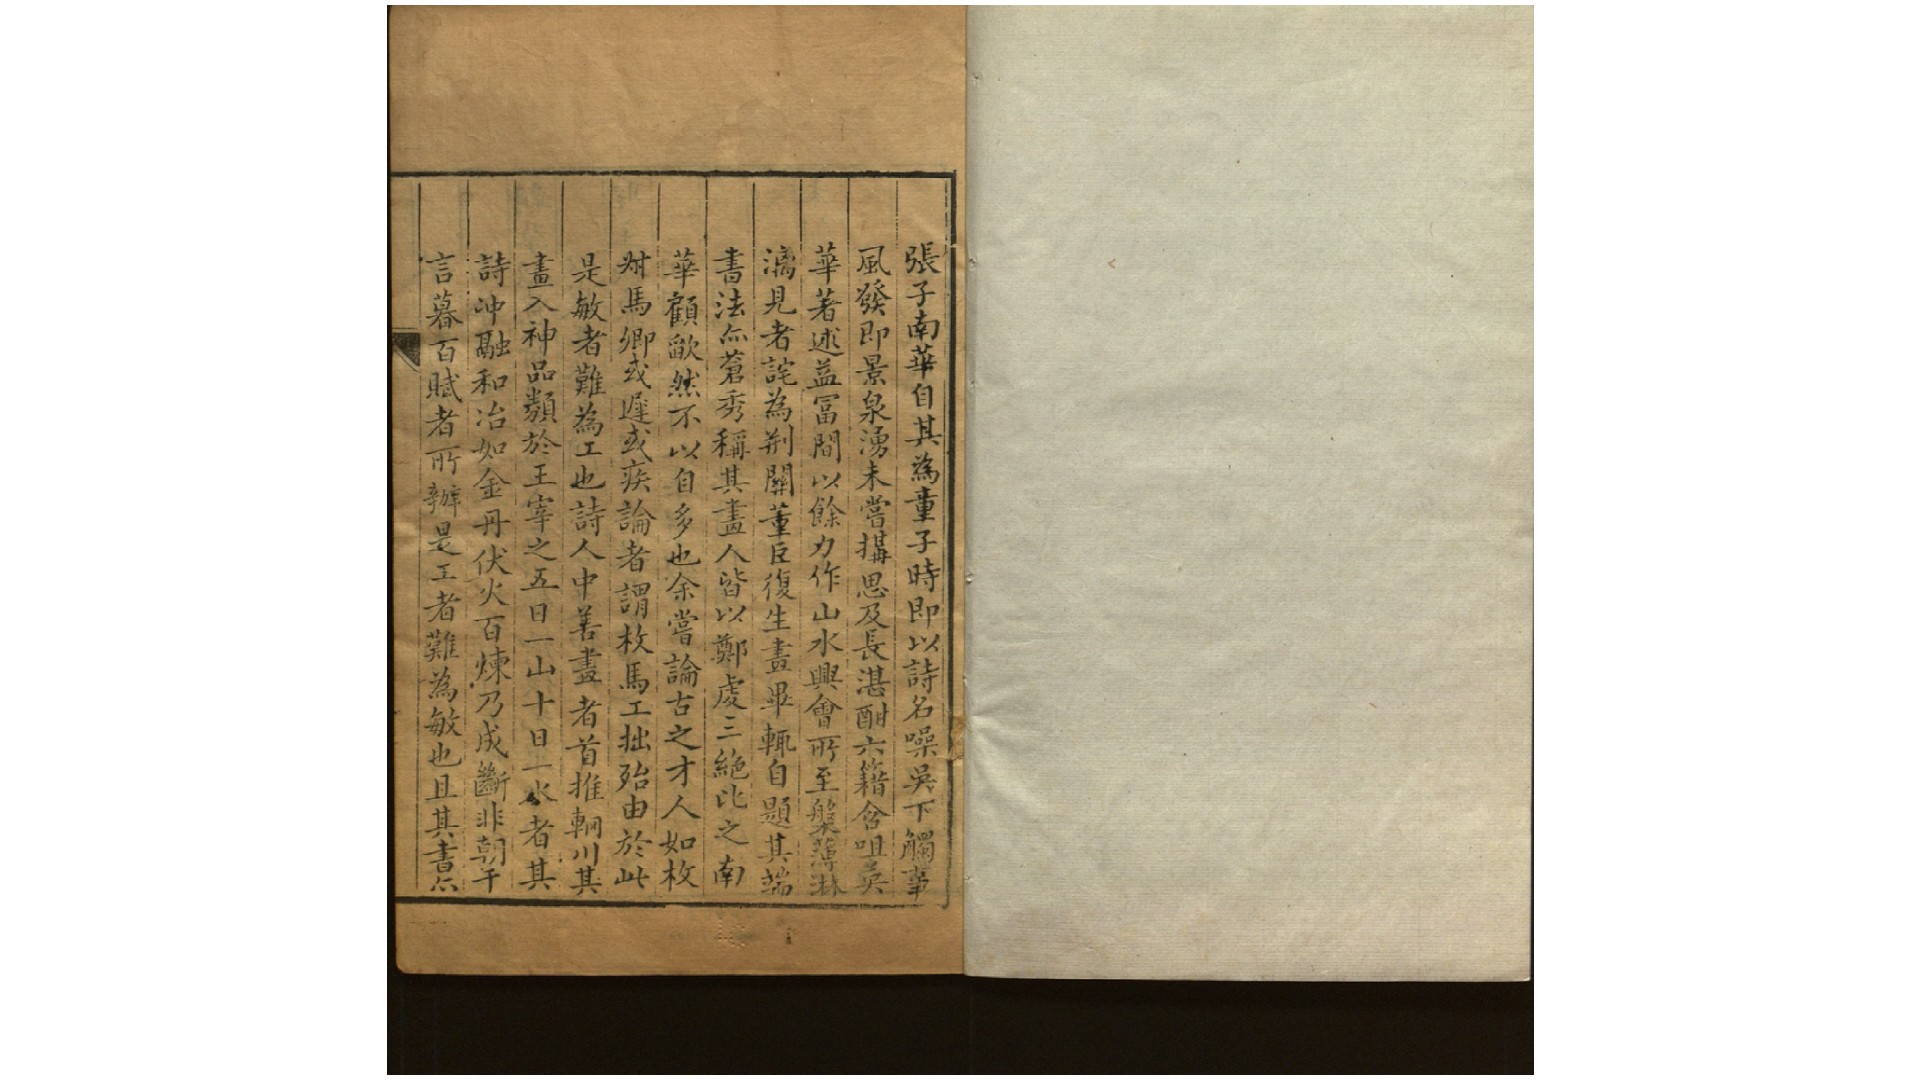 張子南華自其為童子時即以詩名噪吳下觸事
風發即景泉湧未嘗搆思及長湛酣六籍含咀英
華著述益富間以餘力作山水興會所至槃薄淋
漓見者詫為荆關董巨復生畫畢輒自題其端
書法亦蒼秀稱其畫人皆以鄭虔三絶比之南
華顧歉然不以自多也余嘗論古之才人如枚
尗馬卿或遲或疾論者謂枚馬工拙殆由於此
是敏者難為工也詩人中善畫者首推輞川其
畫入神品類於王宰之五日一山十日一水者其
詩冲融和冶如金丹伏火百煉乃成斷非朝千
言暮百賦者所辦是工者難為敏也且其書亦